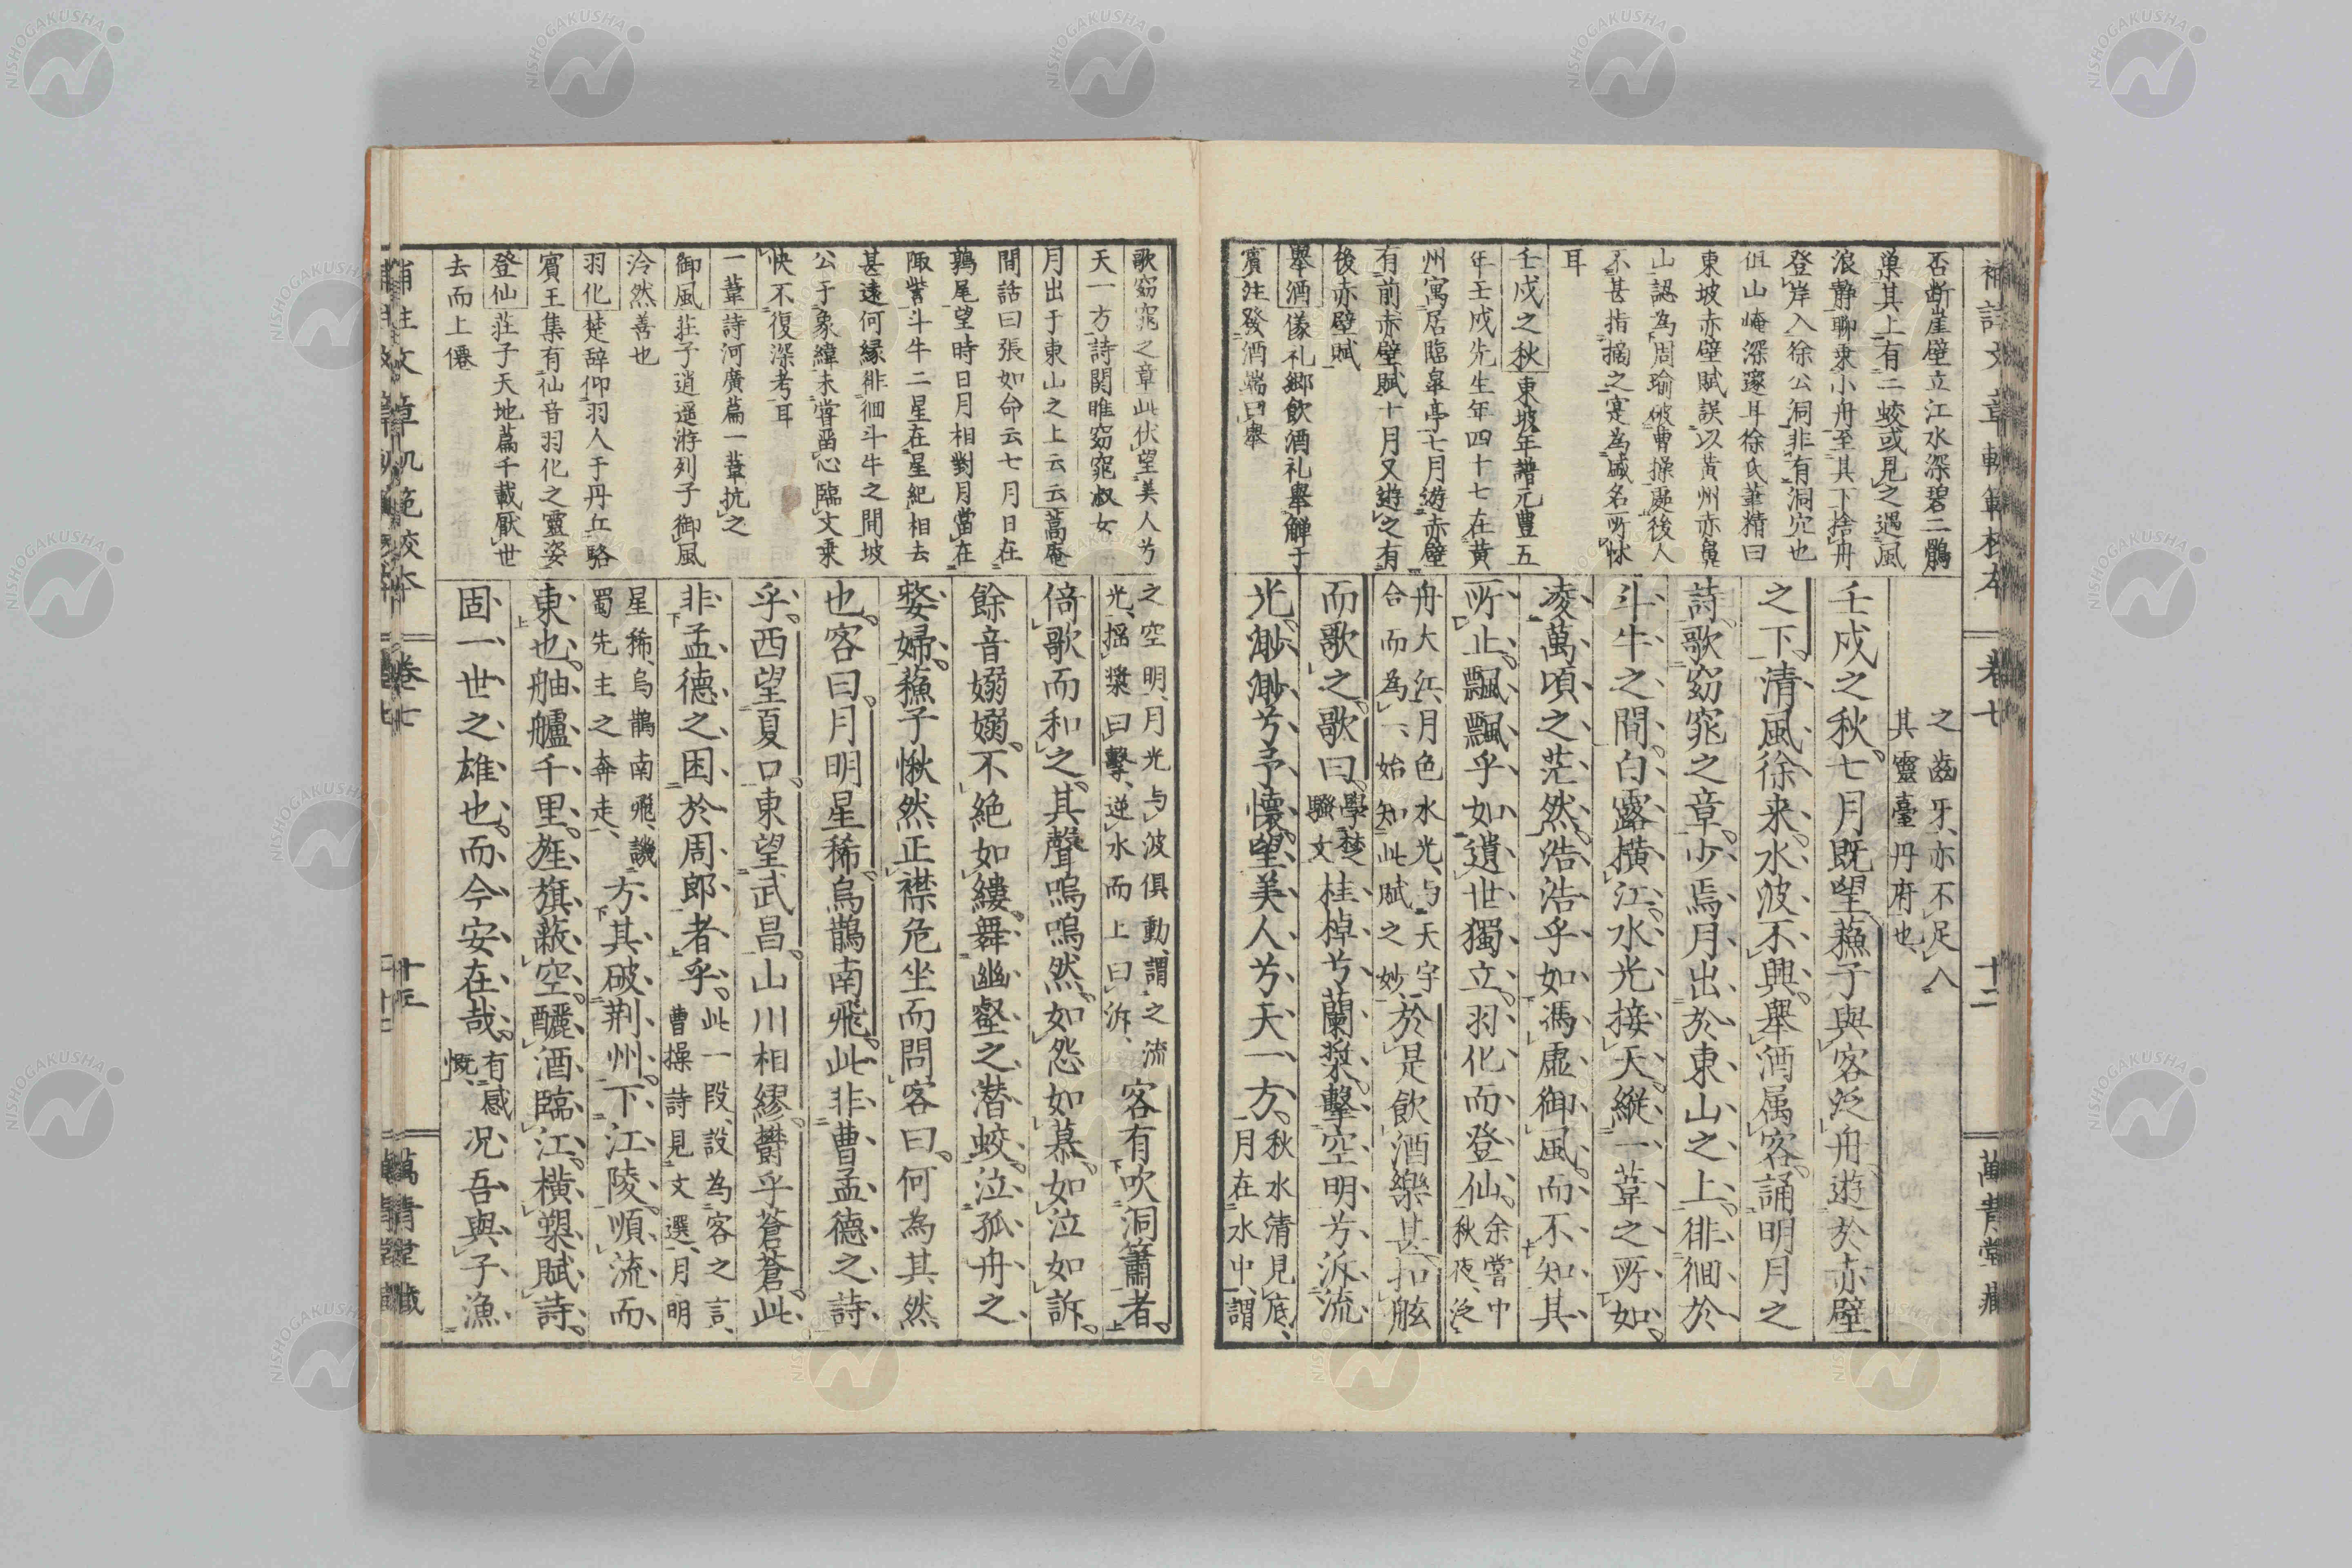 補註文章軌範校本 卷七 十二 萬青堂藏
否斷崖壁立江水深碧二鶻
巢其上有二蛟或見之遇風
浪靜聊乘小舟至其下捨舟
登岸入徐公洞非有洞穴也
但山崦深邃耳徐氏筆精曰
東坡赤壁賦誤以黃州赤鼻
山認為周瑜破曹操處後人
不甚指摘之寔為盛名所怵
耳
壬戌之秋東坡年譜元豊五
年壬戌先生年四十七在黃
州寓居臨皐亭七月遊赤壁
有前赤壁賦十月又遊之有
後赤壁賦
舉酒儀礼鄉飲酒礼舉觶于
賓注發酒端曰舉
之齒牙亦不足入
其靈臺丹府也
壬戌之秋七月既望蘓子與客泛舟遊於赤壁
之下清風徐来水波不興舉酒属客誦明月之
詩歌窈窕之章少焉月出於東山之上徘徊於
斗牛之間白露横江水光接天縱一葦之所如
凌萬頃之茫然浩浩乎如馮虚御風而不知其
所止飄飄乎如遺世獨立羽化而登仙余嘗中秋夜泛
舟大江月色水光与天宇
合而為一始知此賦之妙於是飲酒樂甚扣舷
而歌之歌曰學楚騷文桂棹兮蘭槳擊空明兮泝流
光渺渺兮予懷望美人兮天一方秋水清見底月在水中謂
歌窈窕之章此伏望美人兮
天一方詩関睢窈窕淑女
月出于東山之上云云蒿庵
間話曰張如命云七月日在
鶉尾望時日月相對月當在
陬訾斗牛二星在星紀相去
甚遠何緣徘徊斗牛之間坡
公于象緯未嘗畱心臨文乘
快不復深考耳
一葦詩河廣篇一葦抗之
御風莊子逍遥游列子御風
泠然善也
羽化楚辞仰羽人于丹丘駱
賓王集有仙音羽化之靈姿
登仙莊子天地篇千載厭世
去而上僊
之空明月光与波俱動謂之流
光揺槳曰擊逆水而上曰泝客有吹洞簫者
倚歌而和之其聲嗚嗚然如怨如慕如泣如訴
餘音嫋嫋不絶如縷舞幽壑之潜蛟泣孤舟之
嫠婦蘓子愀然正襟危坐而問客曰何為其然
也客曰月明星稀烏鵲南飛此非曹孟德之詩
乎西望夏口東望武昌山川相繆欝乎蒼蒼此
非孟德之困於周郎者乎此一段設為客之言曹操詩見文選月明
星稀烏鵲南飛譏
蜀先主之奔走方其破荆州下江陵順流而
東也舳艫千里旌旗蔽空釃酒臨江横槊賦詩
固一世之雄也而今安在哉有感慨况吾與子漁
補註文章軌範校本 卷七 十三 萬青堂藏